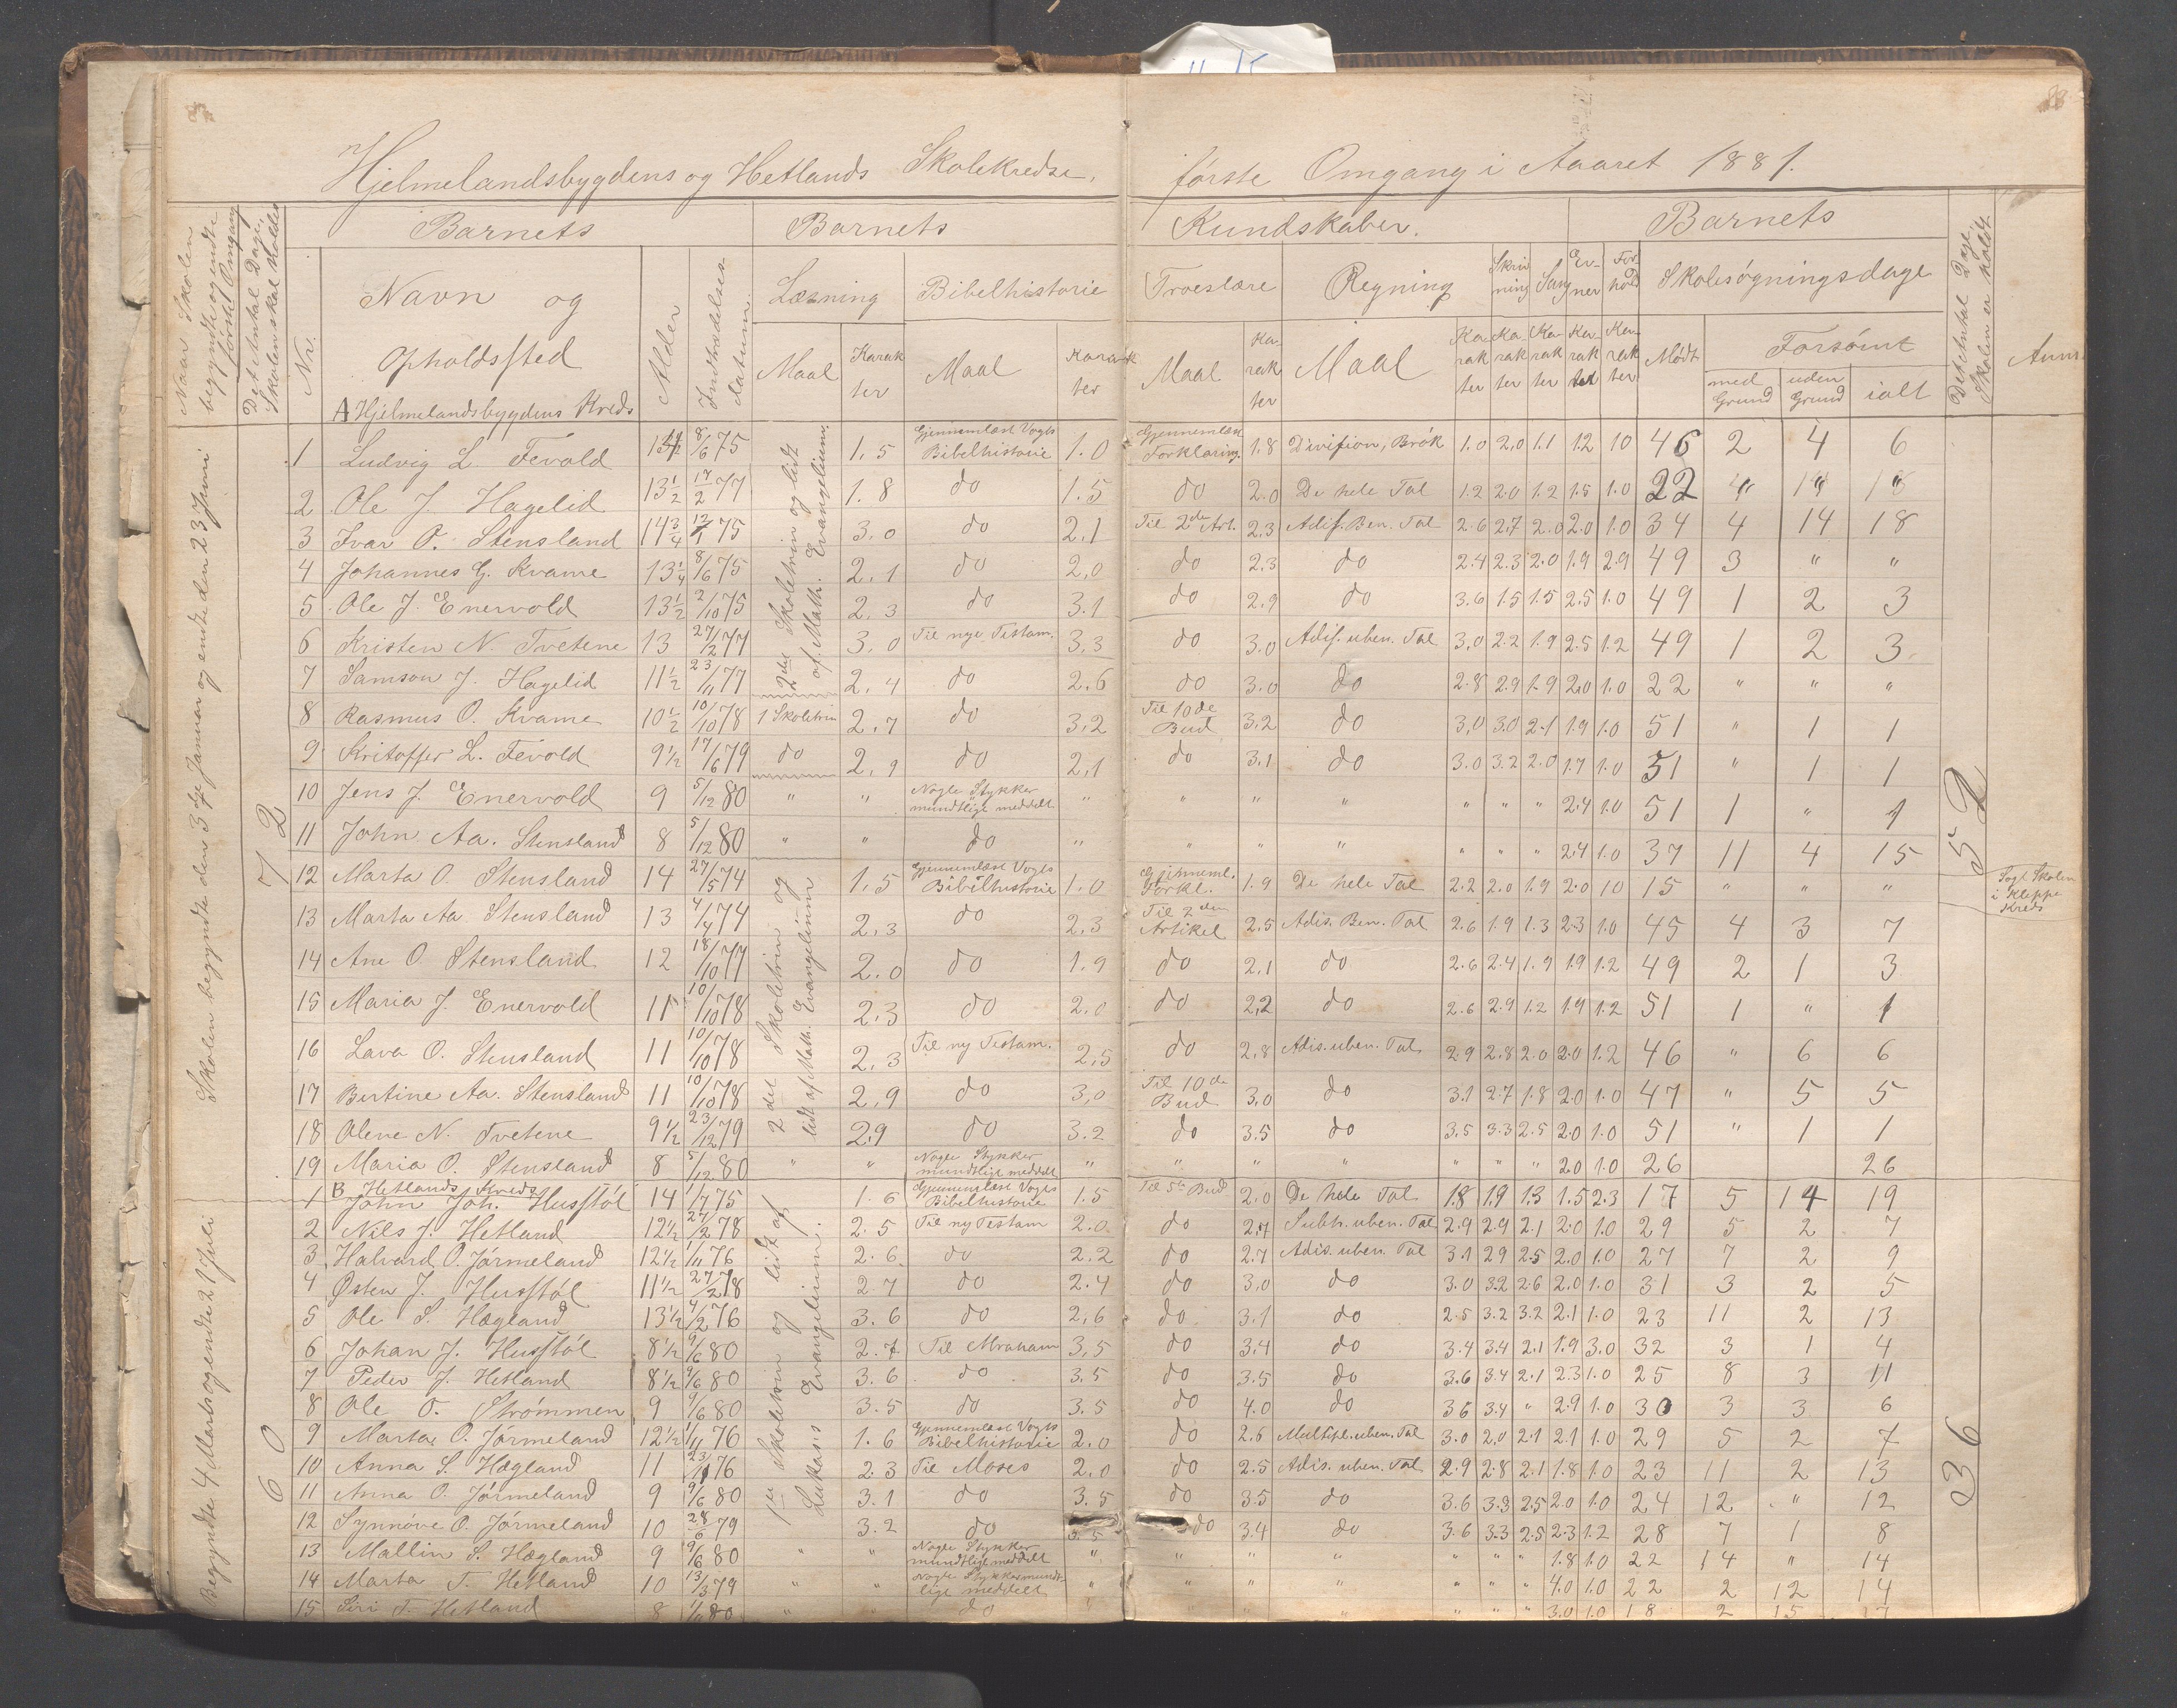 Hjelmelandsbygdens og Hetlands Skolekredse, første Omgang i Aaret 1881.
Naar Skolen begyndte og endte første Omgang
Det Antal Dage, Skolen skal holdes
Barnets
Barnets
Kundskaber.
Barnets
Det Antal Dage, Skolen er holdt
Nr.
Navn og Opholdssted
Alder
Indtrædelses datum.
Læsning
Bibelhistorie
Troeslære
Regning
Skriv ning
Sang
Ev- ner
For- hold
Skolesøgningsdage
Maal
Karak ter
Maal
Karak ter
Maal
Ka- rak ter
Maal
Ka- rak ter
Ka- rak ter
Ka- rak ter
Ka- rak ter
Ka- rak ter
Mødt
Forsømt
med Grund
uden Grund
ialt
Anm.
Skolen begyndte den 3dje Januar og endte den 23 Juni
72
2det Skoletrin og lidt af Matth. Evangelium.
52
A Hjelmelandsbygdens Kreds
1 Ludvig L. Fevold 14 8/6 75 1.5 Gjennemlæst Vogts Bibelhistorie 1.0 Gjennemlæst Forklaring. 1.8 Division, Brøk 1.0 2.0 1.1 1.2 1.0 46 2 4 6
2 Ole J. Hagelid 13 1/2 17/2 77 1.8 do 1.5 do 2.0 De hele Tal 1.2 2.0 1.2 1.5 1.0 22
3 Ivar O. Stensland 14 3/4 12/1 75 3.0 do 2.1 Til 2den Art. 2.3 Adis. Ben. Tal 2.6 2.7 2.0 2.0 1.0 34 4 14 18
4 Johannes G. Kvame 13 1/4 8/6 75 2.1 do 2.0 do 2.3 do 2.4 2.3 2.0 1.9 2.9 49 3 " "
5 Ole J. Enervold 13 1/2 2/10 75 2.3 do 3.1 do 2.9 do 3.6 1.5 1.5 2.5 1.0 49 1 2 3
6 Kristen N. Tvetene 13 27/2 77 3.0 Til nye Testam. 3.3 do 3.0 Adis. uben. Tal 3.0 2.2 1.9 2.5 1.2 49 1 2 3
7 Samson J. Hagelid 11 1/2 23/11 77 2.4 do 2.6 do 3.0 do 2.8 2.9 1.9 2.0 1.0 22 " " "
8 Rasmus O. Kvame 10 1/2 10/10 78 1 Skoletrin 2.7 do 3.2 Til 10de Bud 3.2 do 3.0 3.0 2.1 1.9 1.0 51 " 1 1
9 Kritoffer L. Fevold 9 1/2 17/6 79 do 2.9 do 2.1 do 3.1 do 3.0 3.2 2.0 1.7 1.0 51 " 1 1
10 Jens J. Enervold 9 5/12 80 " " Nogle Stykker mundtlige meddelt " " " " " " " 2.4 1.0 51 1 " 1
11 John Aa. Stensland 8 5/12 80 " " do " " " " " " " 2.4 1.0 37 11 4 15
2det Skoletrin og lidt af Matth. Evangelium
12 Marta O. Stensland 14 27/5 74 1.5 Gjennemlæst Vogts Bibelhistorie 1.0 Gjenneml. Forkl. 1.9 De hele Tal 2.2 2.0 1.9 2.0 1.0 15 " " " Søgt Skolen i Kleppe Kreds
13 Marta Aa. Stensland 13 4/4 74 2.3 do 2.3 Til 2den Artikel 2.5 Adis. Ben. Tal 2.6 1.9 1.3 2.3 1.0 45 4 3 7
14 Ane O. Stensland 12 18/10 77 2.0 do 1.9 do 2.1 do 2.6 2.4 1.9 1.9 1.2 49 2 1 3
15 Maria J. Enervold 11 10/10 78 2.3 do 2.0 do 2.2 do 2.6 2.9 1.2 1.9 1.2 51 1 " 1
16 Lava O. Stensland 11 10/10 78 2.3 Til ny Testam. 2.5 do 2.8 Adis. uben. Tal 2.9 2.8 2.0 2.0 1.2 46 " 6 6
17 Bertine Aa. Stensland 11 10/10 78 2.9 do 3.0 Til 10de Bud 3.0 do 3.1 2.7 1.8 2.0 1.0 47 " 5 5
18 Olene N. Tvetene 9 1/2 23/12 79 2.9 do 3.2 do 3.5 do 3.5 3.3 2.5 2.0 1.0 51 " 1 1
19 Maria O. Stensland 8 5/12 80 " " Nogle Stykker mundtligt meddelt " " " " " " " 2.0 1.0 26 26
Begyndte 4 Marts og endte 21 Juli
60
1ste Skoletrin og lidt af Lukas's Evangelium.
36
B Hetlands Kreds
1 John Joh. Husstøl 14 1/7 75 1.6 Gjennemlæst Vogts Bibelhistorie 1.5 Til 5te Bud 2.0 De hele Tal 1.8 1.9 1.3 1.5 2.3 17 5 14 19
2 Nils J. Hetland 12 1/2 27/2 78 2.5 Til ny Testam 2.0 do 2.7 Subtr. uben. Tal 2.9 2.9 2.1 2.0 1.0 29 5 2 7
3 Halvard O. Jørmeland 12 1/2 1/11 76 2.6 do 2.2 do 2.7 Adis. uben. Tal 3.1 2.9 2.5 2.0 1.0 27 7 2 9
4 Østen J. Husstøl 11 1/2 27/2 78 2.7 do 2.4 do 3.0 do 3.0 3.2 2.6 2.0 1.0 31 3 2 5
5 Ole S. Hægland 13 1/2 4/2 76 3.6 do 2.6 do 3.1 do 2.5 3.2 3.2 2.1 1.0 23 11 2 13
6 Johan J. Husstøl 8 1/2 9/6 80 2.7 Til Abraham 3.5 do 3.4 do 3.4 3.4 2.1 1.9 3.0 32 3 1 4
7 Peder J. Hetland 8 1/2 9/6 80 3.6 do 3.5 do 3.5 do 3.6 3.4 2.1 2.3 1.0 25 8 3 11
8 Ole O. Strømmen 9 9/6 80 3.5 do 3.5 do 4.0 do 3.6 3.4 " 2.9 1.0 30 3 3 6
9 Marta O. Jørmeland 12 1/2 1/11 76 1.6 Gjennemlæst Vogts Bibelhistorie 2.0 do 2.6 Multipl. uben. Tal 3.0 2.0 2.1 2.1 1.0 29 5 2 7
10 Anna S. Hægland 11 23/11 76 2.3 Til Moses 2.0 do 2.5 Adis. uben. Tal 2.9 2.8 2.1 1.8 1.0 23 11 2 13
11 Anna O. Jørmeland 9 9/6 80 3.1 do 3.5 do 3.5 do 3.6 3.3 2.5 2.0 1.0 24 12 " 12
12 Synnøve O. Jørmeland 10 28/6 79 3.2 do 3.5 do 3.4 do 3.6 3.3 2.5 2.3 1.2 28 7 1 8
13 Mallin S. Hægland 9 9/6 80 " " Nogle Stykker mundtligt meddelt " " " " " " " 1.8 1.0 22 14 " 14
14 Marta T. Hetland 10 13/3 79 " " Nogle Stykker mundt- lige meddelt " " " " " " " 4.0 1.0 22 2 12 14
15 Siri T. Hetland 8 1/11 80 " " do " " " " " " " 3.0 1.0 18 2 15 17